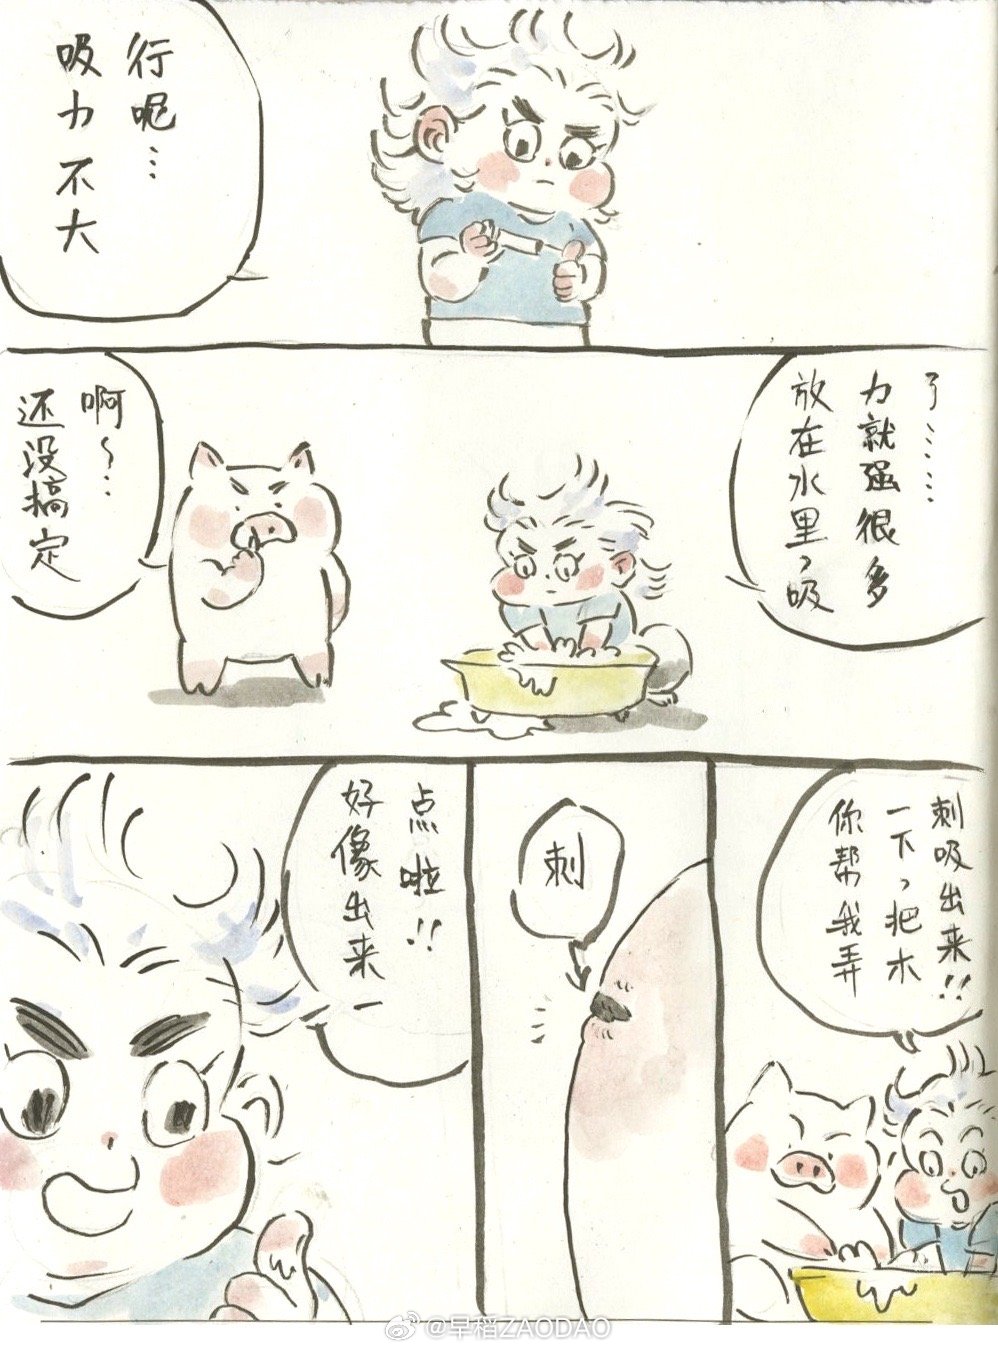 吸力不大
行呢…
还没搞定
啊~…
放在水里，吸
力就强很多
了……
好像出来一
点啦!!
刺
你帮我弄
一下，把木
刺吸出来!!
@早稻ZAODAO